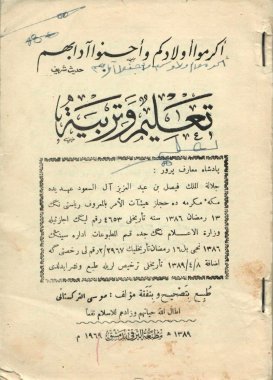 أكرموا أولادكم وأحسنوا آدابهم
حديث شريف
تعليم وتربية
پادشاه معارف پرور :
جلالة الملك فيصل بن عبد العزيز آل السعود عهديده
مكة مكرمه ده حجاز هيئات الأمر بالمعروف رئيسي نك
١٣ رمضان ١٣٨٦ سنه تأريخلي ٤٦٥٣ رقم لیك اجازتيله
وزارة الاعلام نك جده قسم المطبوعات اداره سينك
١٣٨٦ نجي ييل ١٦ رمضان تأريخليك ٢/٣٩٦٧ رقم لي رخصتي گه
اضافة ١٣٨٩/٤/٨ تأريخلي ترخيص لريله طبع ونشر ايدلدى
طبع بتصحيح وبنفقة مؤلف : موسى التركستاني
اطال الله حياتهم وزادهم للاسلام نفعا
١٣٨٩ هـ مطبعة الترقي بدمشق ١٩٦٩ م